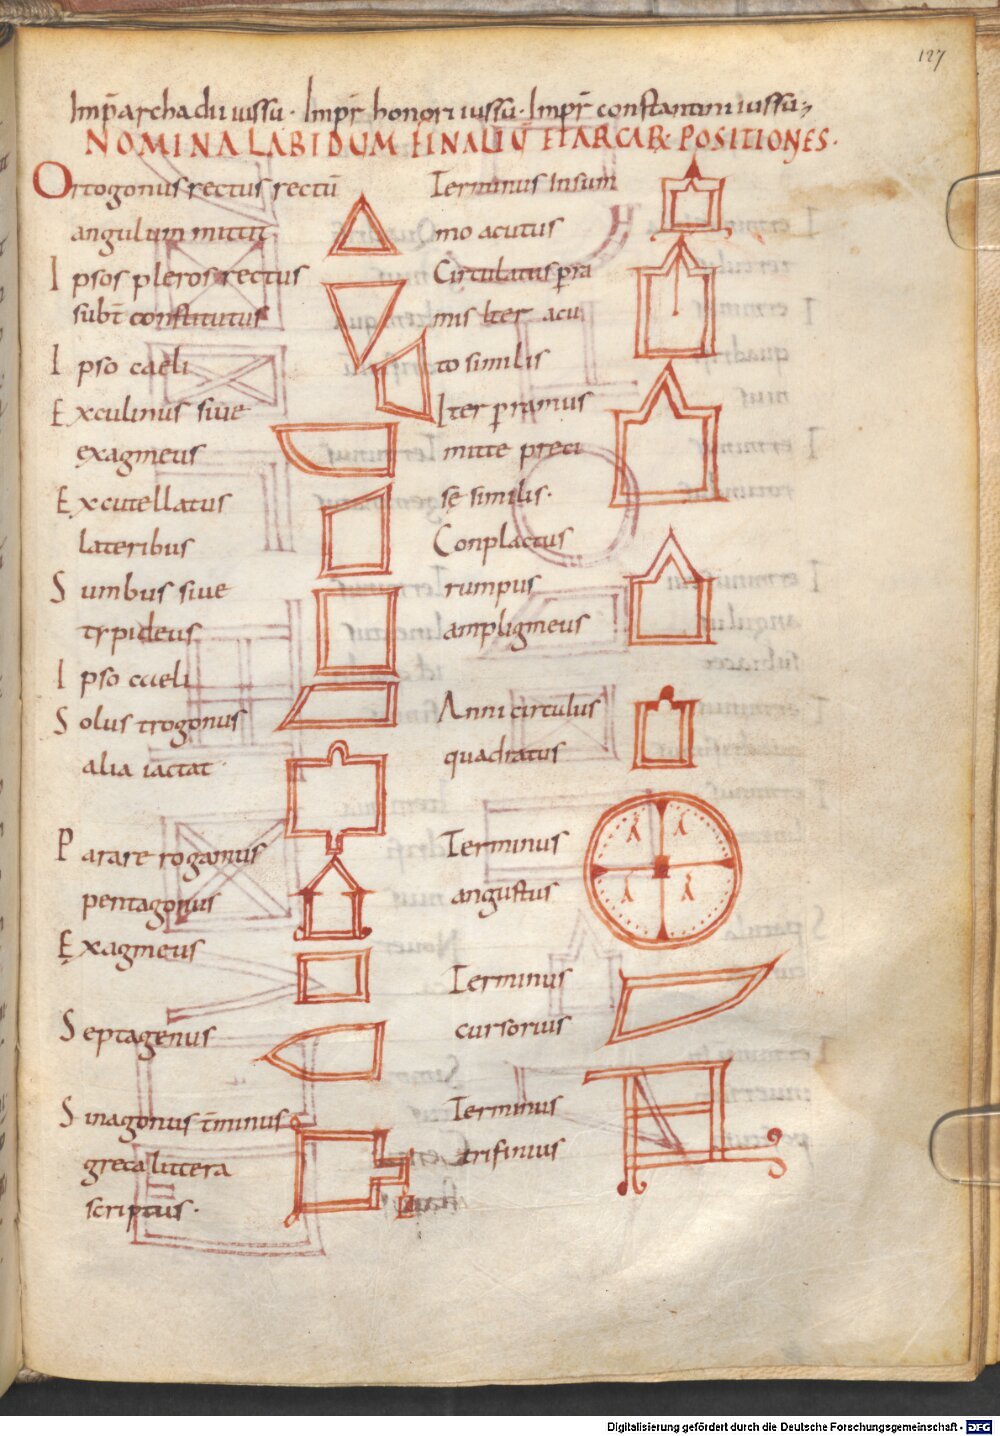 127
Imp̄ archadii iussū · Impr̄ honori iussū · Impr̄ constantini iussū;
NOMINA LAPIDUM FINALIŪ ET ARCAR̄ POSITIONES ·
Ortogonus rectus rectū
angulum mittit
Ipsos pleros rectus
subt̄ constitutus
Ipso caeli
Exculinus siue
exagineus
Excutellatus
lateribus
Sumbus siue
trpideus
Ipso caeli
Solus trogonus
alia iactat
Parare rogamus
pentagonus
Exagineus
Septagenus
Sinagonus t̄minus
greca littera
scriptus ·
Terminus Insum
mo acutus
Circulatus pra
mis Iter acu
to similis
Iter pramus
mitte preci
sę similis ·
Conplactus
rumpus
ampligineus
Anni circulus
quadratus
Terminus
angustus
Terminus
cursorius
Terminus
trifinius
Digitalisierung gefördert durch die Deutsche Forschungsgemeinschaft - DFG